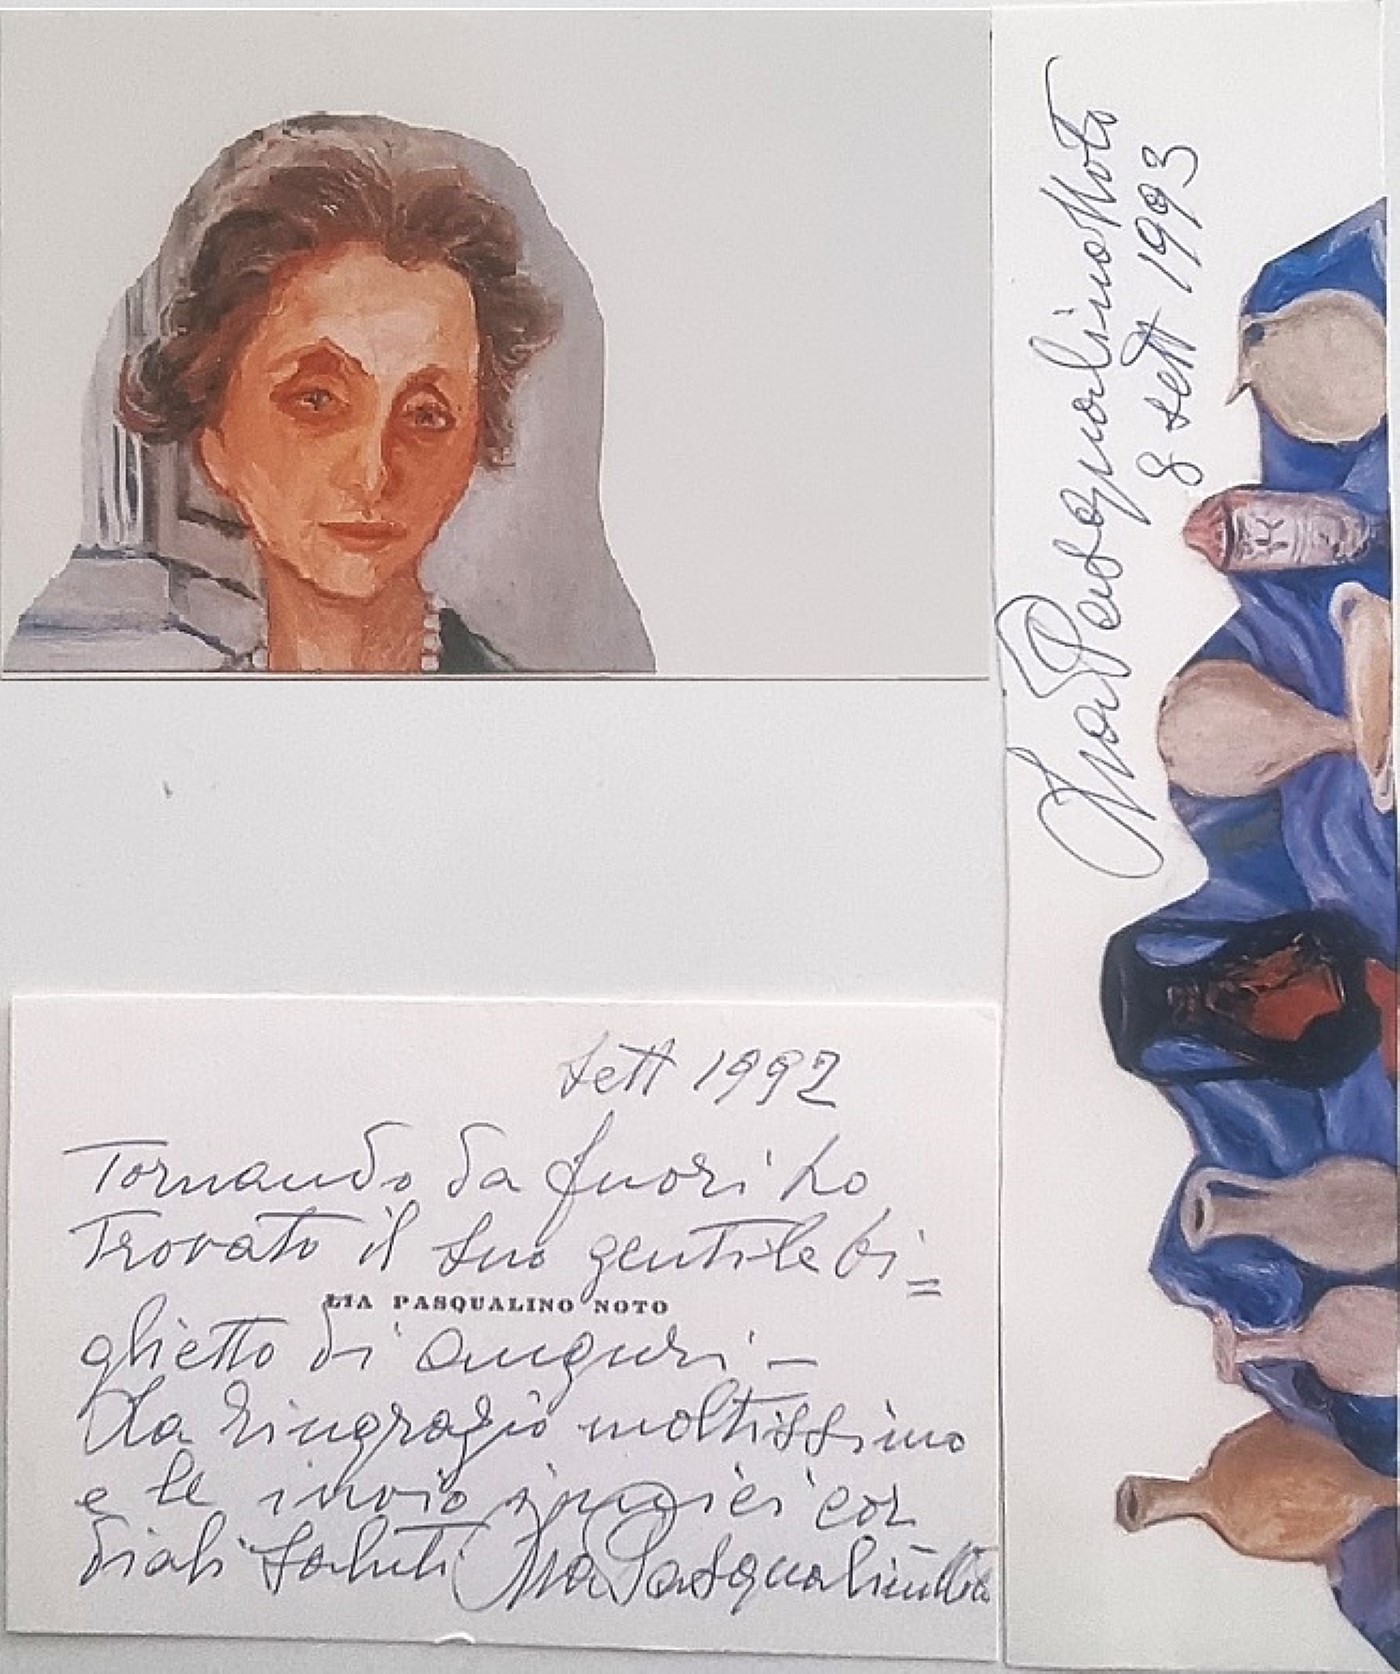 Sett 1992
Tornando da fuori ho
trovato il suo gentile bi=
LIA PASQUALINO NOTO
glietto di auguri —
La ringrazio moltissimo
e le invio i miei cor
diali saluti Lia Pasqualino Noto
Lia Pasqualino Noto
8 sett 1993